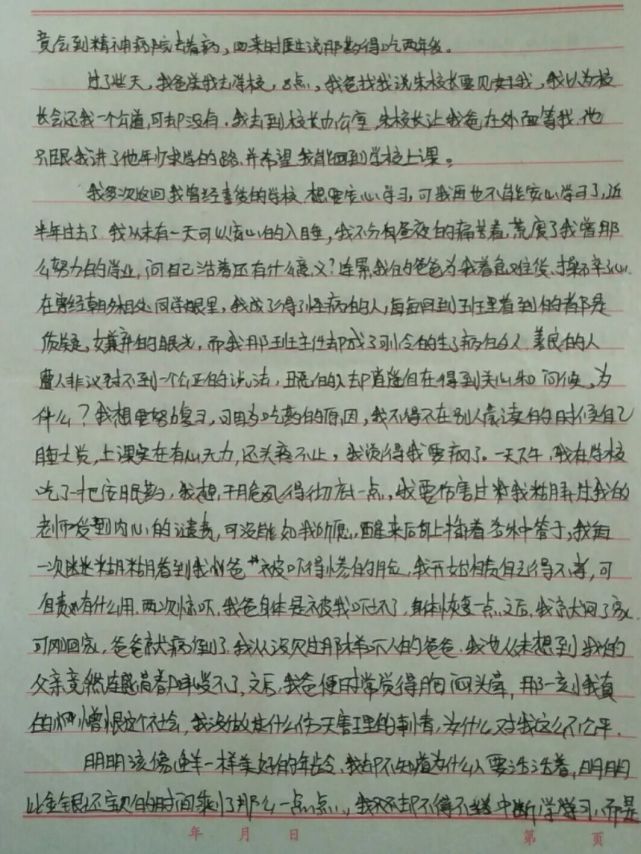 竟会到精神病院去看病，回来时医生说那药得吃两年多。
过了些天，我爸送我去学校，8点，我爸找我说朱校长要见好我，我以为校
长会还我一个公道，可却没有。我去到校长办公室，朱校长让我爸在外面等我，他
只跟我讲了他年少求学的路，并希望我能回到学校上课。
我多次返回我曾经喜爱的学校，想要安心学习，可我再也不能安心学习了，近
半年过去了，我从未有一天可以安心的入睡，我不分昼夜的痛苦着，荒废了我曾那
么努力的学业，问自己活着还有什么意义？连累我的爸爸为我着急难受、操碎了心。
在曾经朝夕相处同学眼里，我成了得了怪病的人，每每回到班里看到的都是
质疑，嫌弃的眼光，而我那班主任却成了可怜的生了病的人，善良的人
遭人非议讨不到一个公正的说法，丑恶的人却肖遥自在得到关心和问候，为
什么？我想要努力复习，可因为吃药的原因，我不得不在别人读的时候自己
睡大觉，上课实在有心无力，还头疼不止，我觉得我要疯了。一天下午，我在学校
吃了一把安眠药，我想，干脆死得彻底一点，我要伤害过我的
老师受到内心的谴责，可没能如我所愿，醒来后身上插着管子，我每
一次迷迷糊糊看到我爸爸被吓得惨白的脸，我开始自己得不孝，可
自责有什么用，两次惊吓，我爸身体是被我吓坏了，身体恢复一点之后，我爸回了家，
可刚回家，爸爸就病倒了，我从没见过那样吓人的爸爸，我也从未想到我的
父亲竟然连感冒都受不了，之后，我爸便时常觉得胸闷头晕，那一刻我真
的好憎恨这个社会，我没做过什么伤天害理的事情，为什么对我这么不公平。
明明该像鲜花一样美好的年龄，我却不知道为什么要活着，明明
比金银还宝贝的时间剩了那么一点点，我却不得不中断学习，而是
年 月 日 第 页